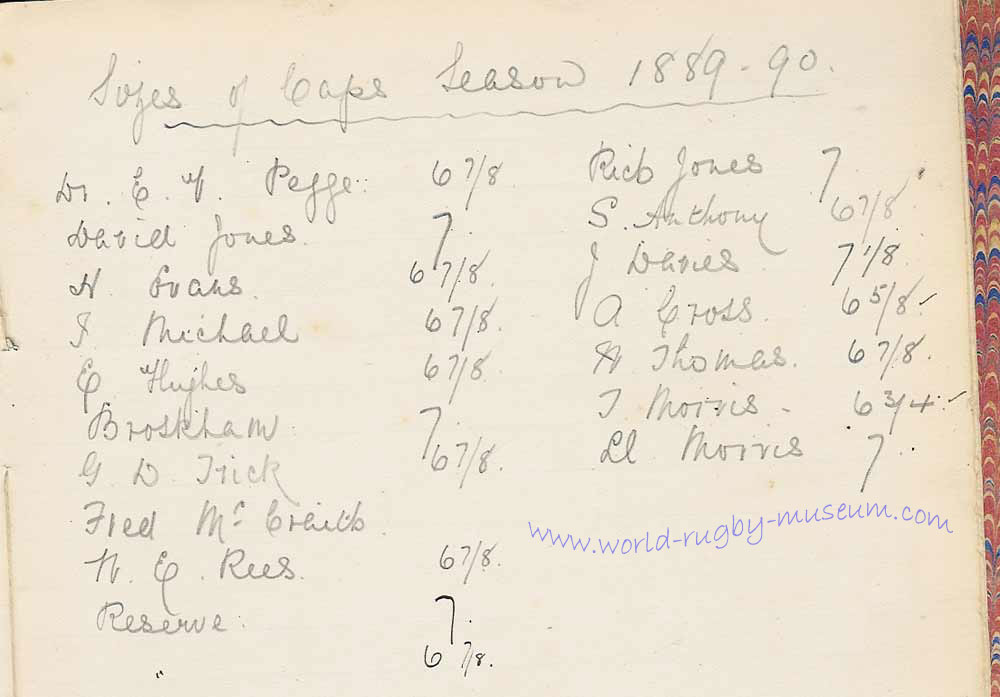 Sizes of Caps Season 1889-90.
Dr. E. Pegge. 6 7/8.
David Jones. 7.
H. Evans. 6 7/8.
Michael 6 7/8.
E Hughes 6 7/8.
7.
G. D. Trick 6 7/8.
Fred
W. E. Rees. 6 7/8.
Reserve: 7.
" 6 7/8.
Rich Jones 7.
S. Anthony 6 7/8.
J Davies. 7 1/8.
A Cross. 6 5/8.
W Thomas. 6 7/8.
T Morris. 6 3/4.
Ll Morris 7.
www.world-rugby-museum.com